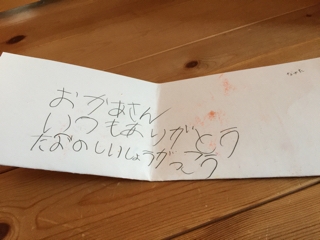 おかあさん
いつもありがとう
たおのしいしょうがっこう